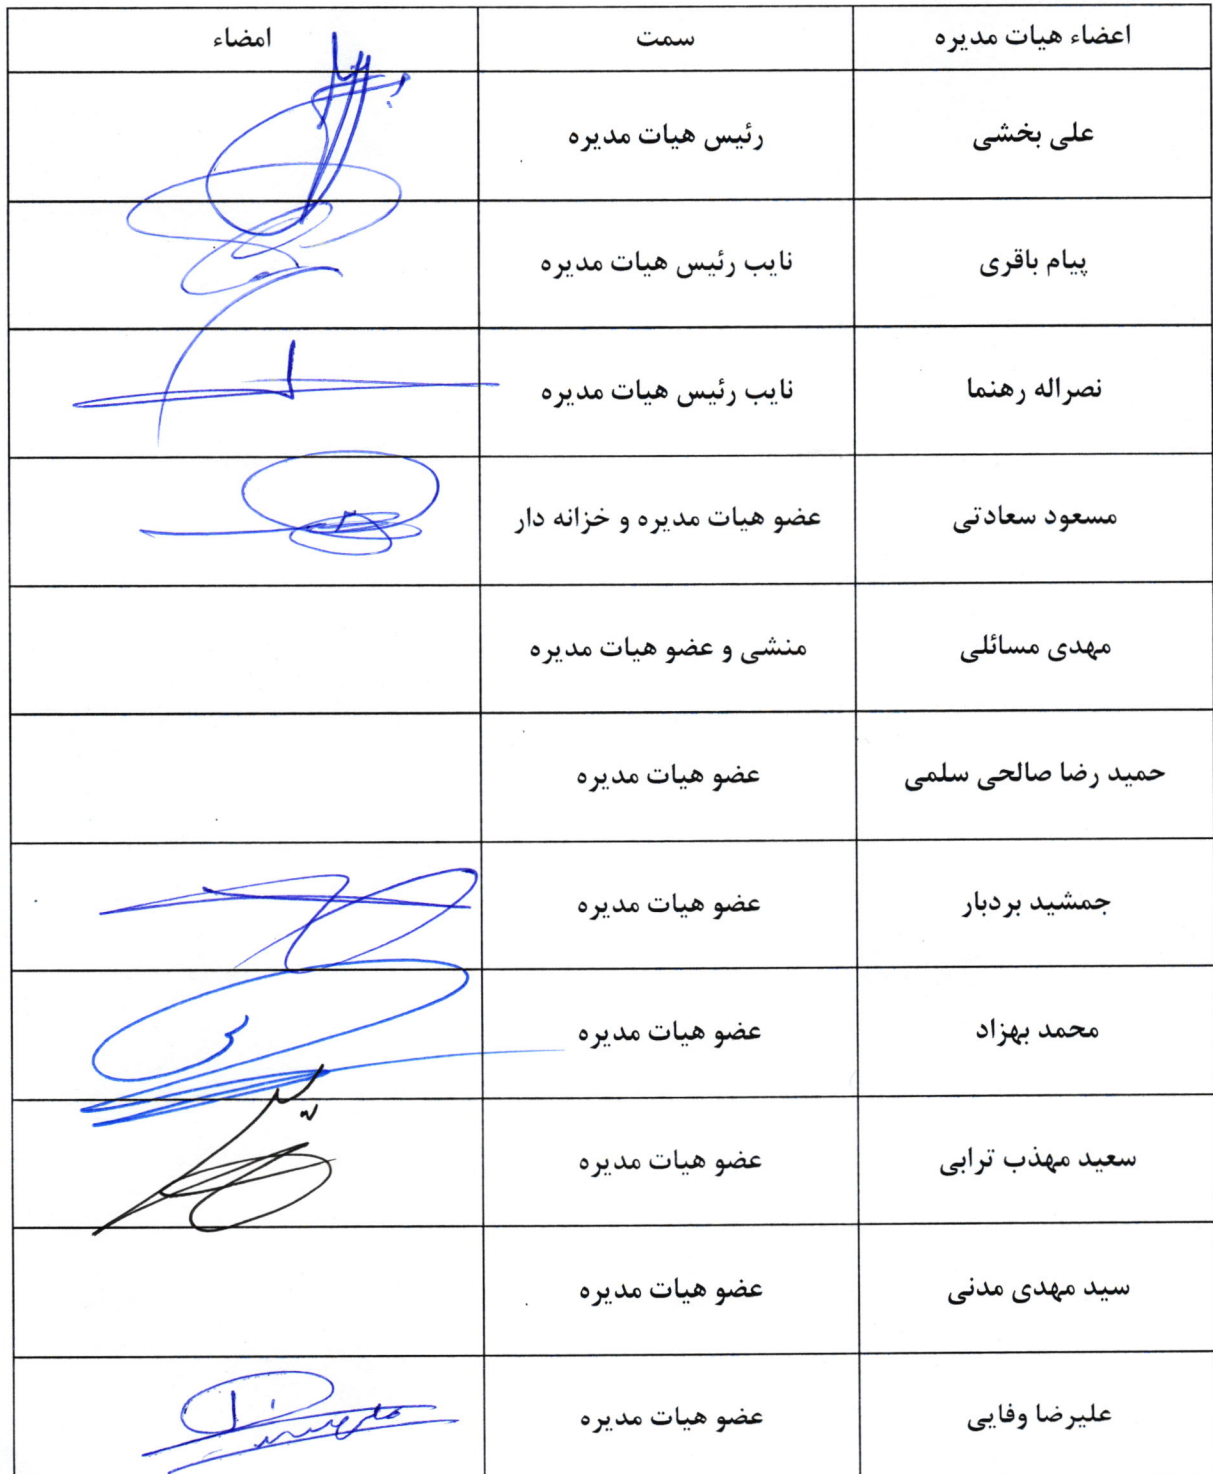 اعضاء هیات مدیره سمت امضاء
علی بخشی رئیس هیات مدیره
پیام باقری نایب رئیس هیات مدیره
نصراله رهنما نایب رئیس هیات مدیره
مسعود سعادتی عضو هیات مدیره و خزانه دار
مهدی مسائلی منشی و عضو هیات مدیره
حمید رضا صالحی سلمی عضو هیات مدیره
جمشید بردبار عضو هیات مدیره
محمد بهزاد عضو هیات مدیره
سعید مهذب ترابی عضو هیات مدیره
سید مهدی مدنی عضو هیات مدیره
علیرضا وفایی عضو هیات مدیره